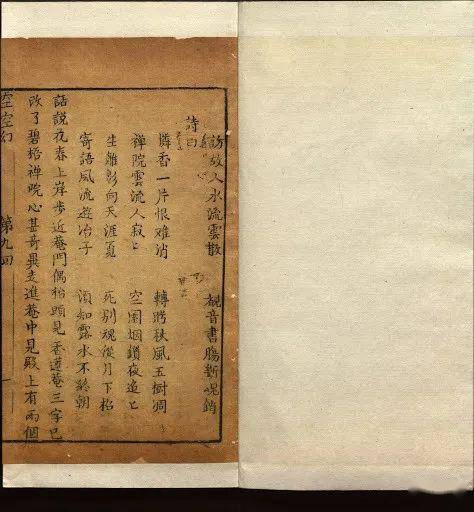 訪故人水流雲散 観音書腸斷魂銷
詩曰
憐香一片恨难消 轉將秋風五樹凋
禪院雲流人寂〻 空園烟鎖夜迢〻
生離影向天涯覓 死別魂從月下招
寄語風流遊冶子 須知露水不終朝
話說花春上岸步近菴門偶抬頭見香蓮菴三字已
改了碧梧禅院心甚奇異走進菴中見殿上有兩個
空空幻 第九回 一